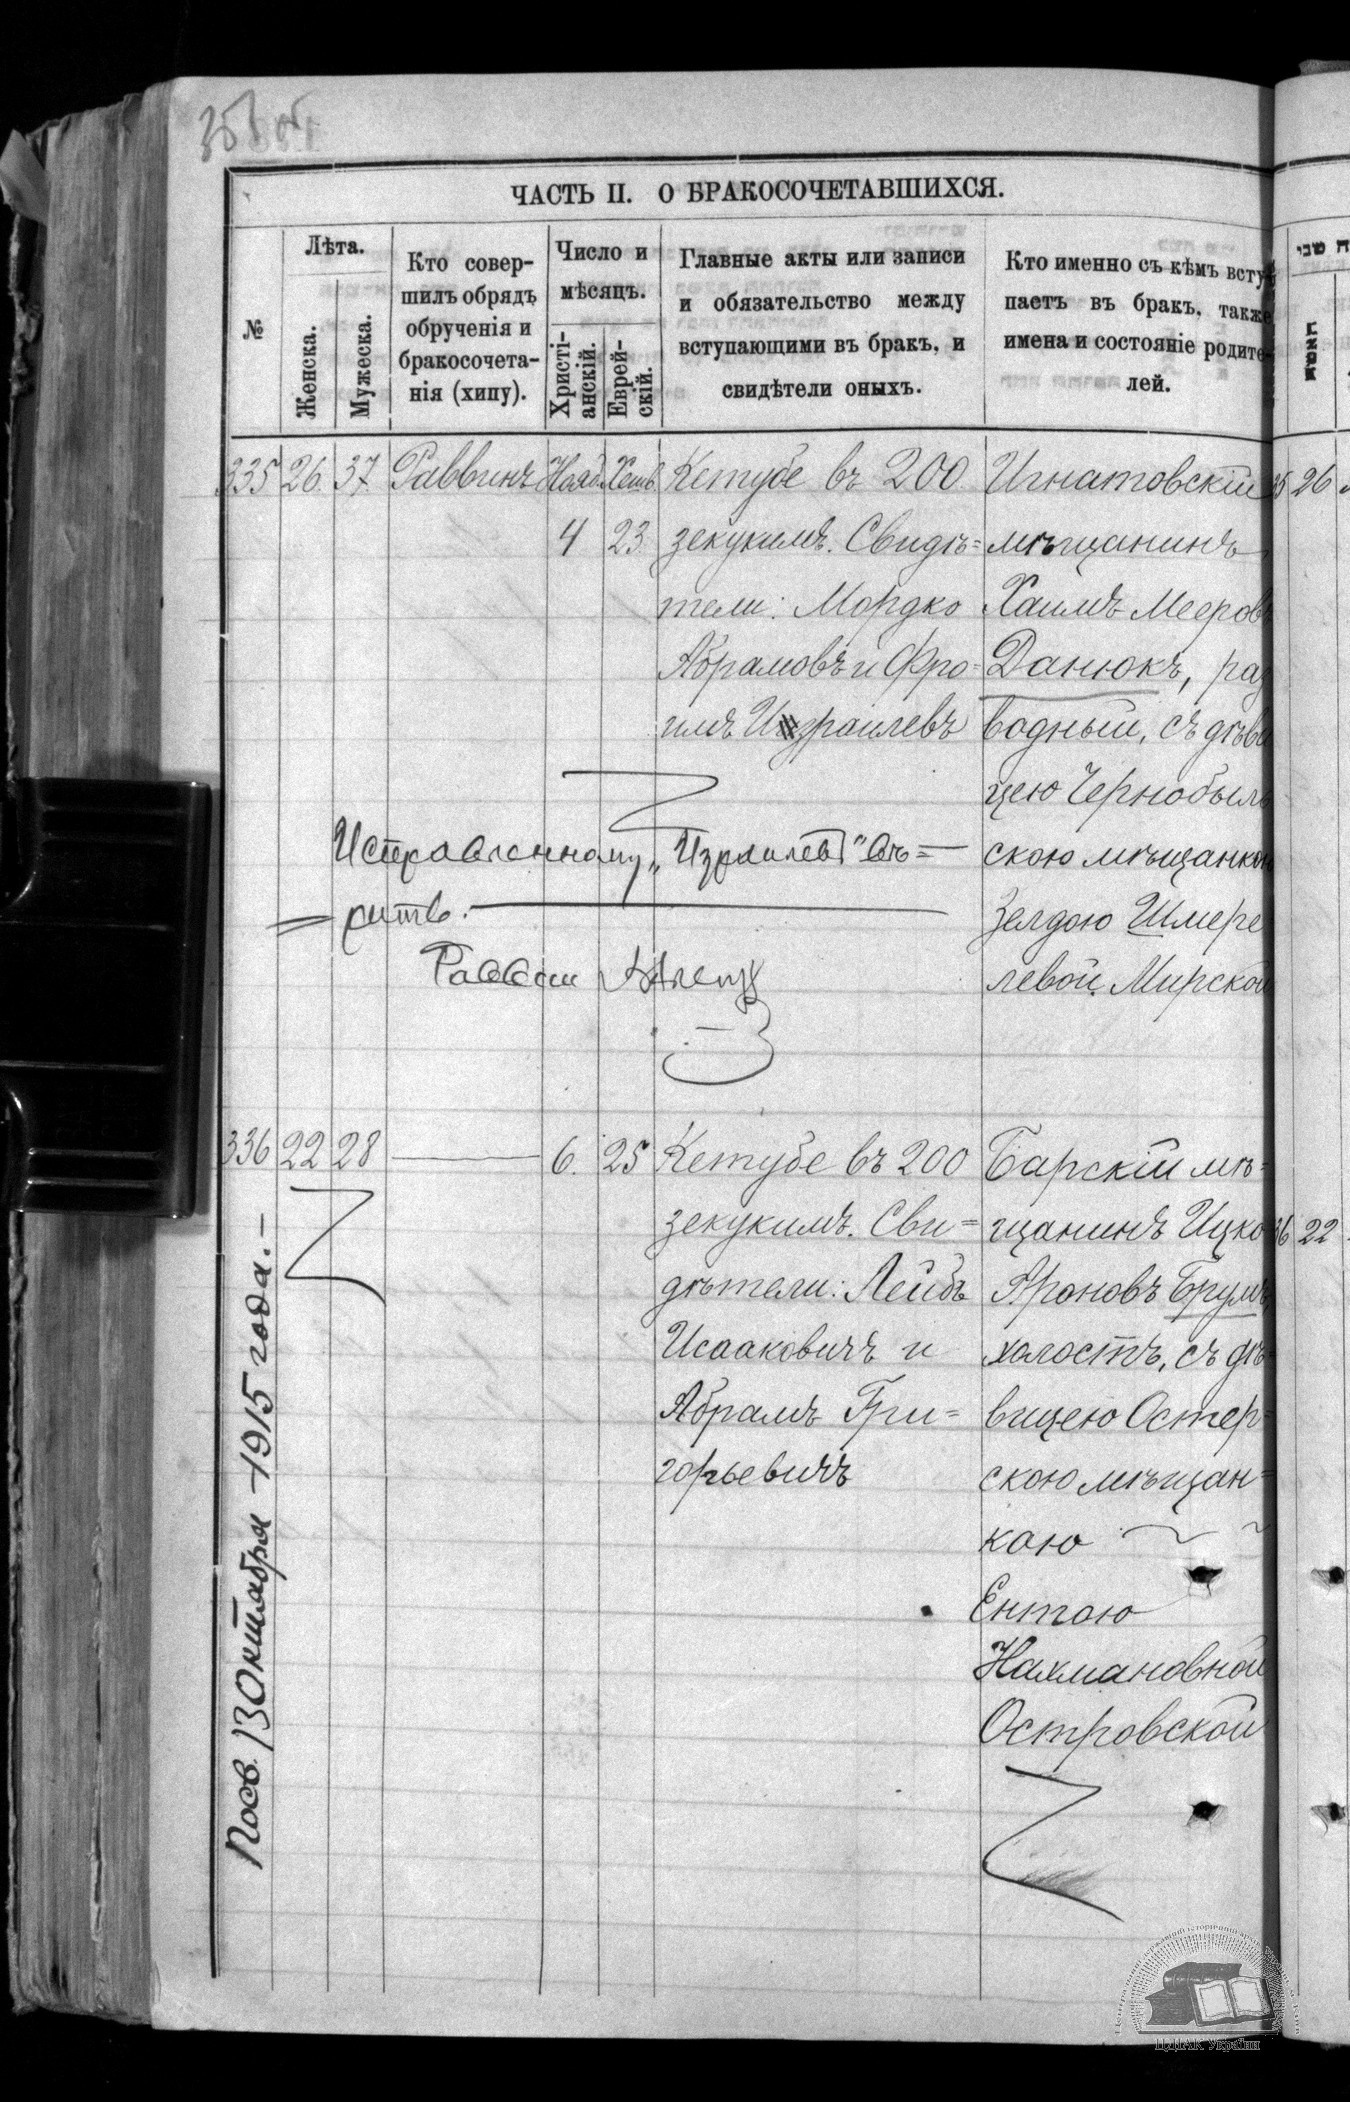 ЧАСТЬ II. О БРАКОСОЧЕТАВШИХСЯ.
№
Лѣта.
Женска.
Мужеска.
Кто совер-
шилъ обрядъ
обрученія и
бракосочета-
нія (хипу).
Число и
мѣсяцъ.
Христі-
анскій.
Еврей-
скій.
Главные акты или записи
и обязательство между
вступающими въ бракъ, и
свидѣтели оныхъ.
Кто именно съ кѣмъ всту-
паетъ въ бракъ, также
имена и состояніе родите-
лей.
335 26. 37. Раввинъ Нояб. Хешв.
4 23.
Кетубе въ 200
зекукимъ. Свидѣ=
тели: Мордко
Абрамовъ и Фро=
имъ Израилевъ
Игнатовскій
мѣщанинъ
Хаимъ Мееров
Данюкъ, раз
водный, съ дѣви
цею Чернобыль
скою мѣщанкою
Зелдою Шмере
левой Мирской
Исправленному „Израилевъ" вѣ=
=рить.
Раввин
35 26
336 22 28 6. 25
Кетубе въ 200
зекукимъ. Сви=
дѣтели: Лейбъ
Исааковичъ и
Абрамъ Гри=
горьевичъ
Барскій мѣ=
щанинъ Ицко
Ароновъ Брумъ,
холостъ, съ дѣ=
вицею Остер=
скою мѣщан=
кою
Ентою
Нахмановной
Островской
36 22
Посв. 13 Октября 1915 года.-
ЦДІАК України